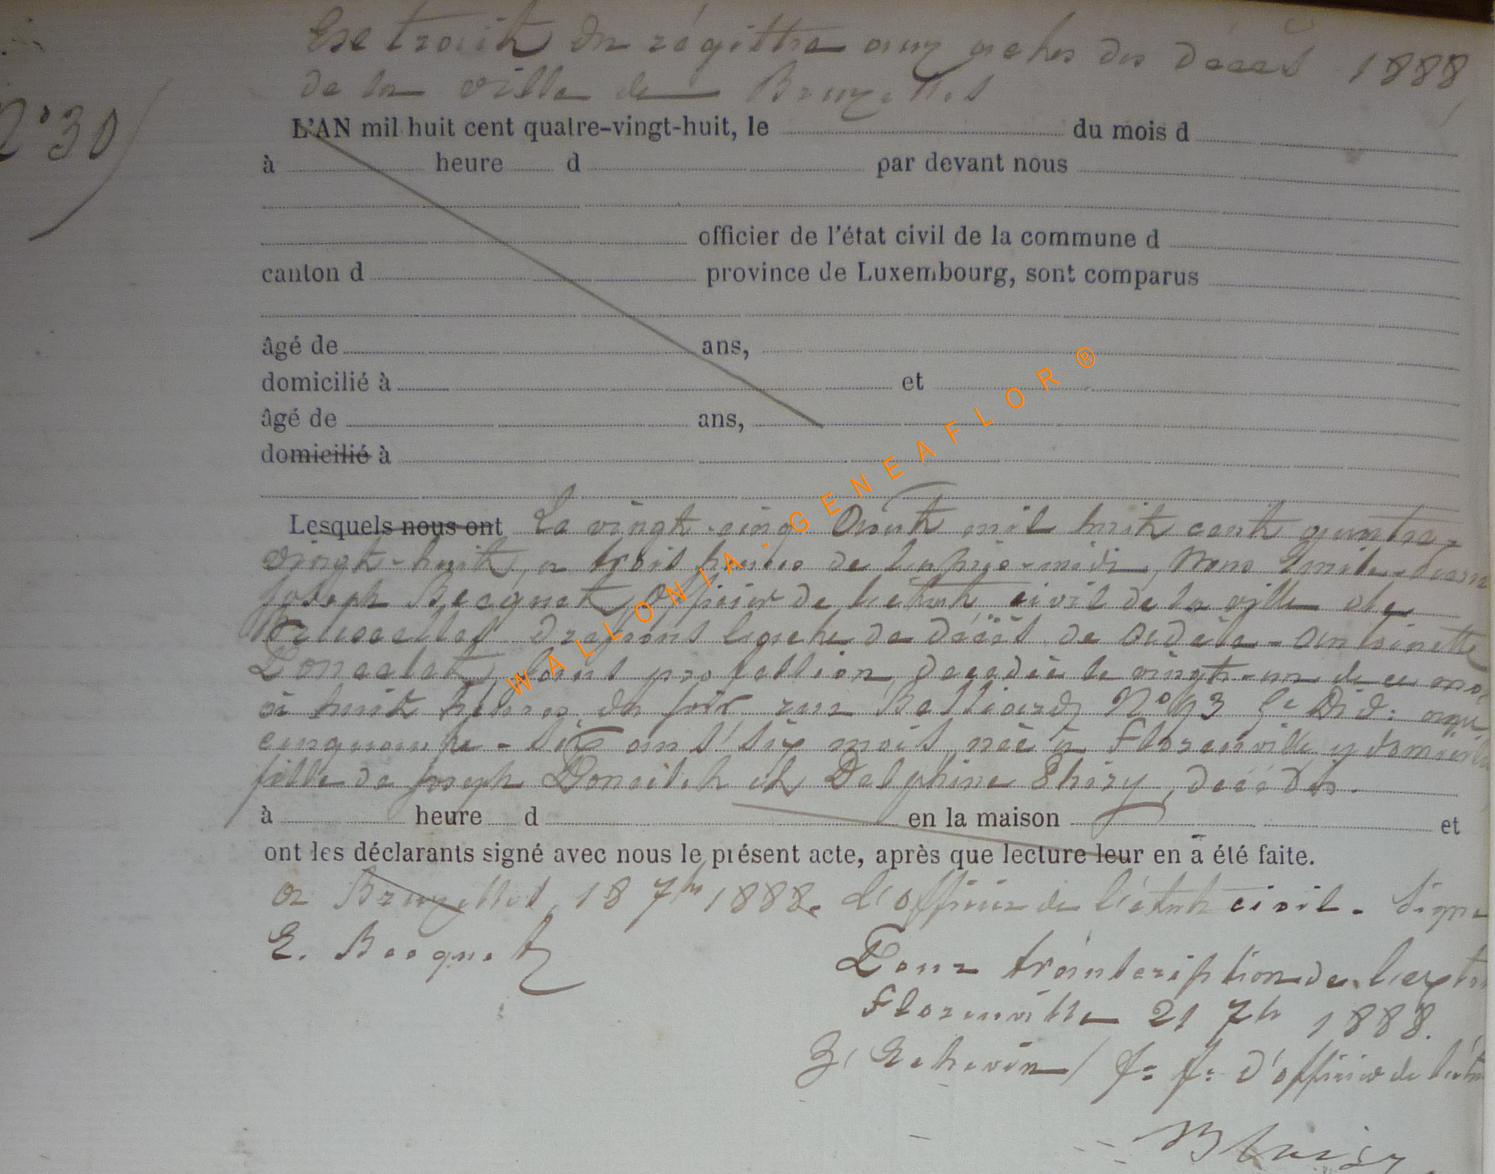 Extrait du régistre aux actes des décès 1888
de la ville de Bruxelles
N° 30
L'AN mil huit cent quatre-vingt-huit, le du mois d
à heure d par devant nous
officier de l'état civil de la commune d
canton d province de Luxembourg, sont comparus
âgé de ans,
domicilié à et
âgé de ans,
domicilié à
Lesquels nous ont Le vingt-cinq Août mil huit cent quatre-
vingt-huit, a trois heures de l'après-midi, Nous Emile
Joseph Becquet, Officier de l'état civil de la ville de
Bruxelles dressons l'acte de décès de Antoinette
Poncelet, sans profession, décédée le vingt-un de ce mois
à huit heures du soir rue Belliard, N° 93
cinquante-six ans six mois, née à Florenville y domicil
fille de Joseph et Delphine Thiry, décédés.
à heure d en la maison et
ont les déclarants signé avec nous le présent acte, après que lecture leur en a été faite.
a Bruxelles, 18 7bre 1888. L'officier de l'état civil. Signé
E. Becquet
Pour transcription de l'extra
Florenville 21 7bre 1888.
Echevin f. f. d'officier de l'état
WALLONIA - GENEAFLOR ®